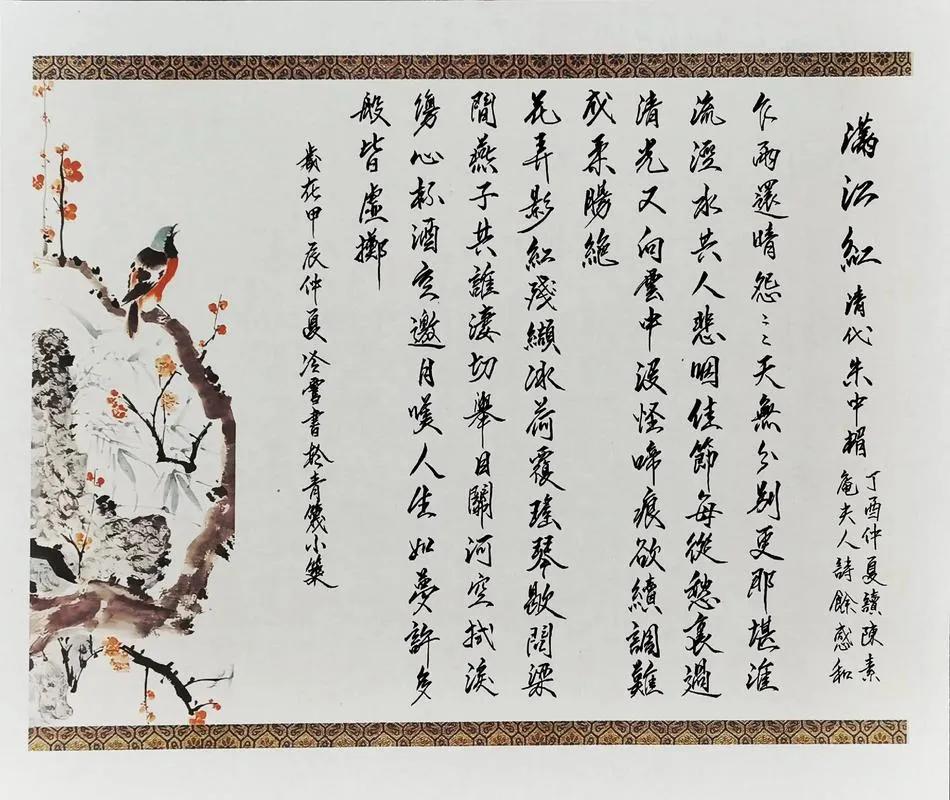 滿江紅 清代朱中楣
丁酉仲夏讀陳素
庵夫人詩餘感和
乍雨還晴怨〻天無分別更那堪淮
流涇水共人悲咽佳節每從愁裏過
清光又向雲中沒怪啼痕欲續調難
成柔腸絕
花弄影紅殘纈冰荷覆瑤琴歇問梁
間燕子共誰淒切舉目關河空拭淚
傷心杯酒空邀月嘆人生如夢許多
般皆虛擲
歲在甲辰仲夏冷雪書於青箋小築